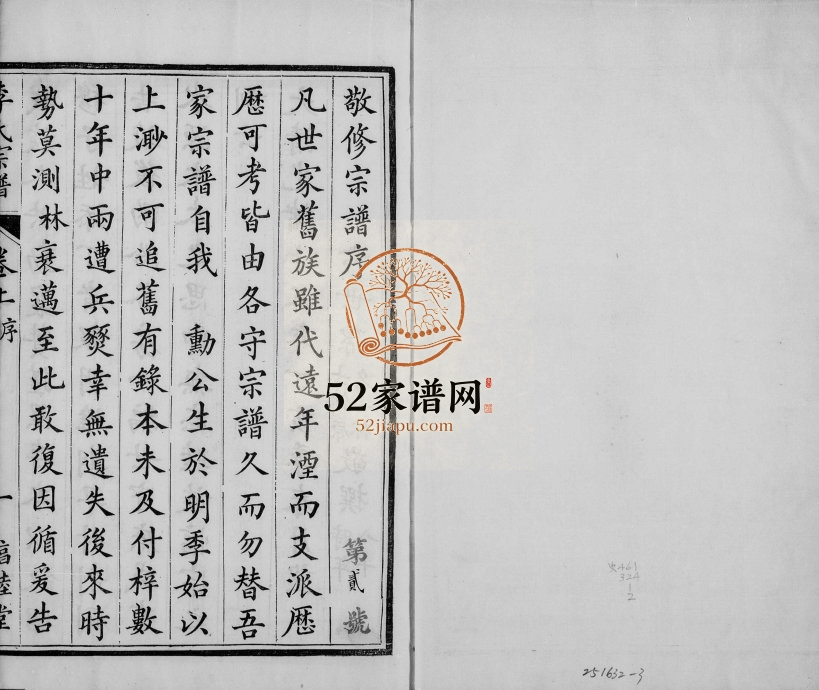 敬修宗譜序
第貳號
凡世家舊族雖代遠年湮而支派歷
歷可考皆由各守宗譜久而勿替吾
家宗譜自我 勳公生於明季始以
上渺不可追舊有錄本未及付梓數
十年中兩遭兵燹幸無遺失後來時
勢莫測林衰邁至此敢復因循爰告
李氏宗譜 卷上序 一
52家谱网
52jiapu.com
461
324
1
2
251632-3